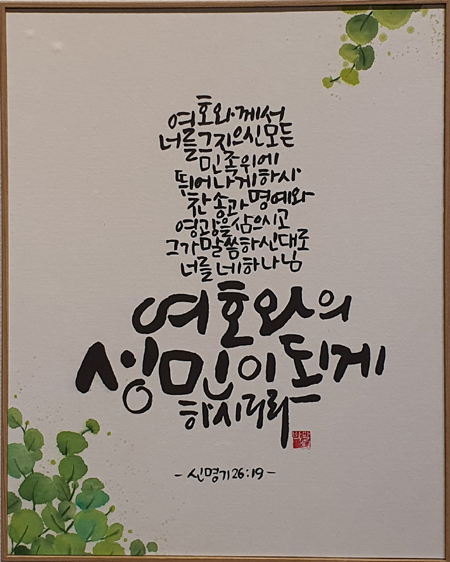 여호와께서
너를 그 지으신 모든
민족 위에
뛰어나게 하사
찬송과 명예와
영광을 삼으시고
그가 말씀하신대로
너를 네 하나님
여호와의
성민이 되게
하시리라
- 신명기 26:19 -